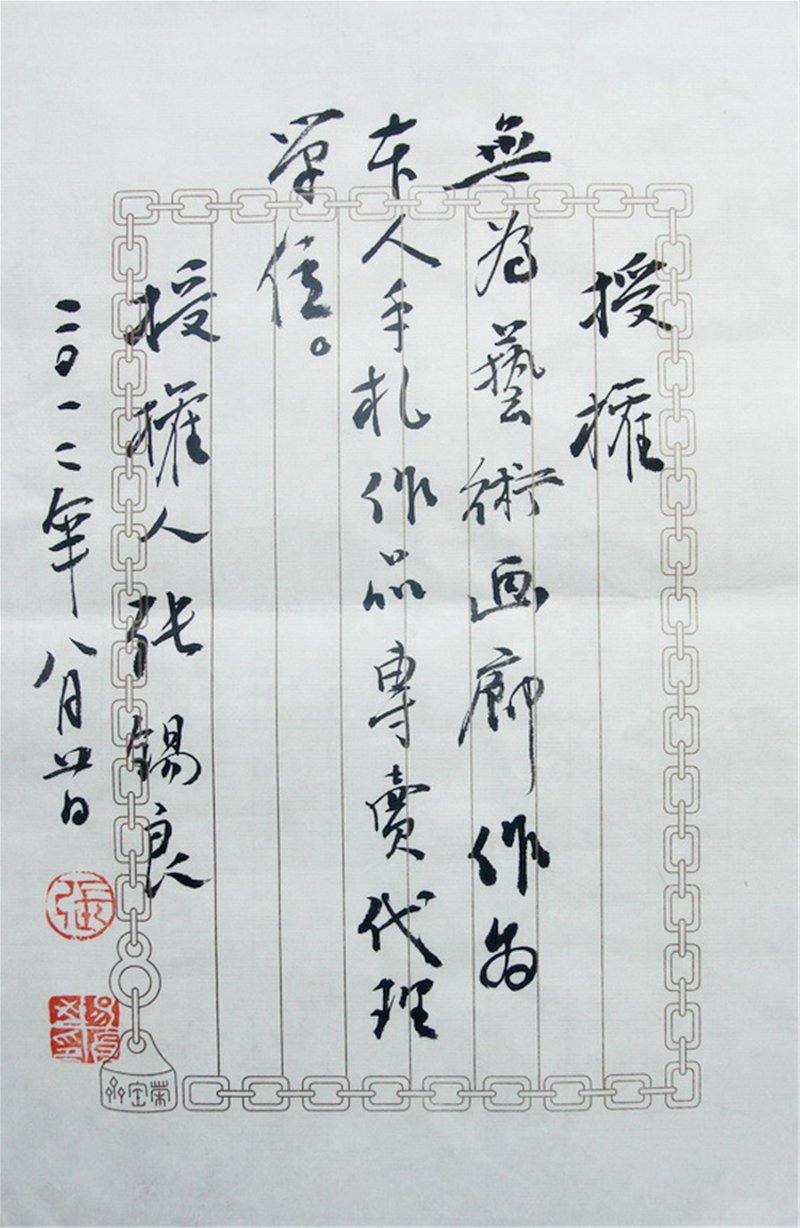 授權
無為藝術画廊作为
本人手札作品專賣代理
單位。
授權人張錫良
二〇一二年八月廿日
張
榮宝齋